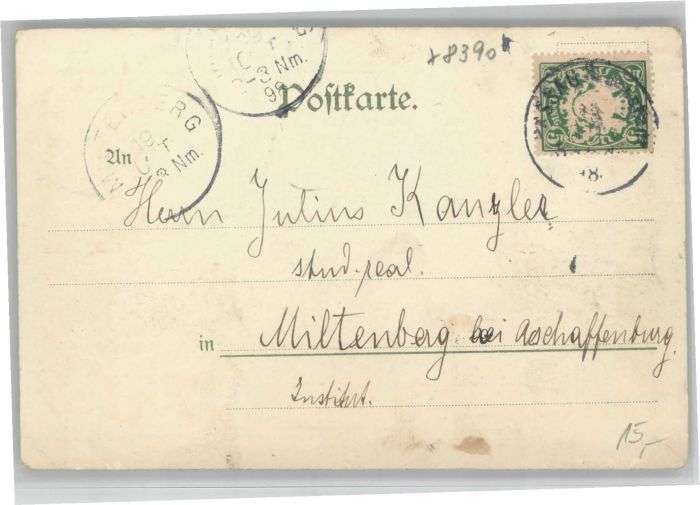 x8390
Postkarte.
MILTENBERG
3 Nm.
99
An
Herrn Julius Kanzler
stud. real.
in Miltenberg bei Aschaffenburg
Institut.
15,-